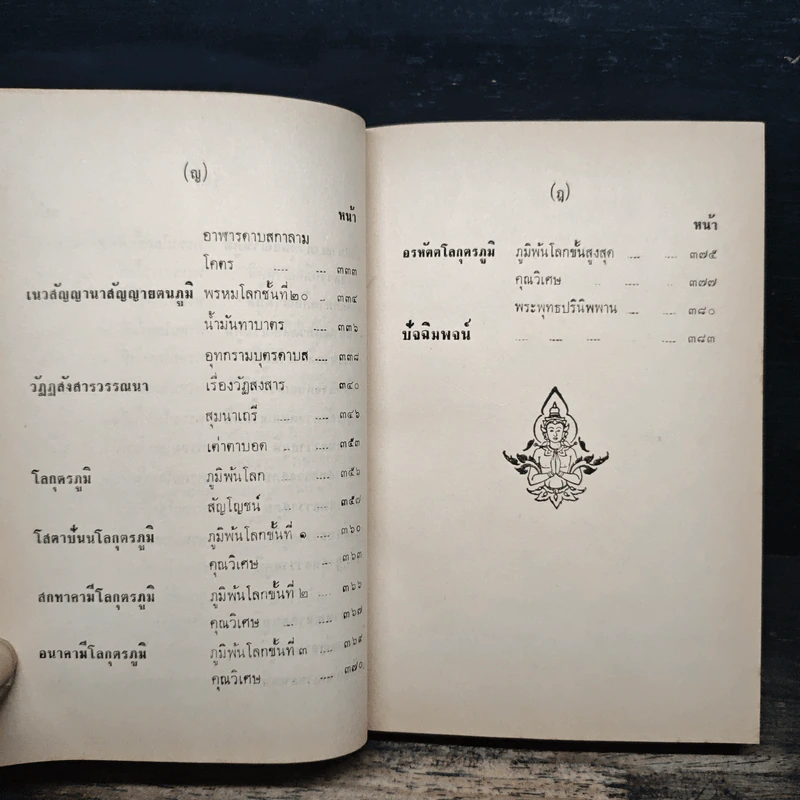 (ญ)
หน้า
อาฬารดาบสกาลาม
โคตร .... .... ๓๓๓
เนวสัญญานาสัญญายตนภูมิ พรหมโลกชั้นที่๒๐ .. ๓๓๔
น้ำมันทาบาตร .... ๓๓๖
อุทกรามบุตรดาบส .... ๓๓๘
วัฏฏสังสารวรรณนา เรื่องวัฏสงสาร .... ๓๔๐
สุมนาเถรี .... .... ๓๔๖
เต่าตาบอด .. .... ๓๕๓
โลกุตรภูมิ ภูมิพ้นโลก .... .... ๓๕๖
สัญโญชน์ .... .... ๓๕๗
โสดาปันนโลกุตรภูมิ ภูมิพ้นโลกชั้นที่ ๑ .... ๓๖๐
คุณวิเศษ .... .... ๓๖๓
สกทาคามีโลกุตรภูมิ ภูมิพ้นโลกชั้นที่ ๒ .... ๓๖๖
คุณวิเศษ .... .... ๓๖๗
อนาคามีโลกุตรภูมิ ภูมิพ้นโลกชั้นที่ ๓ .... ๓๖๙
คุณวิเศษ .... .... ๓๗๐
(ฎ)
หน้า
อรหัตตโลกุตรภูมิ ภูมิพ้นโลกขั้นสูงสุด .... ๓๗๕
คุณวิเศษ .. .... ๓๗๗
พระพุทธปรินิพพาน .... ๓๘๐
ปัจฉิมพจน์ .... .... .... .... ๓๘๓